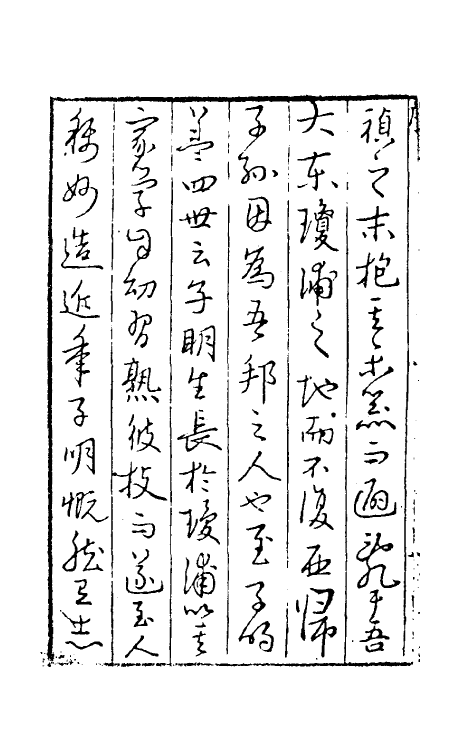 禎之末抱其樂器而遁亂乎吾
大東瓊浦之地而不復西帰
子孫因為吾邦之人也至子明
蓋四世云子明生長於瓊浦以其
家學自幼習熟彼技而遂至人
称妙造近年子明慨然有志